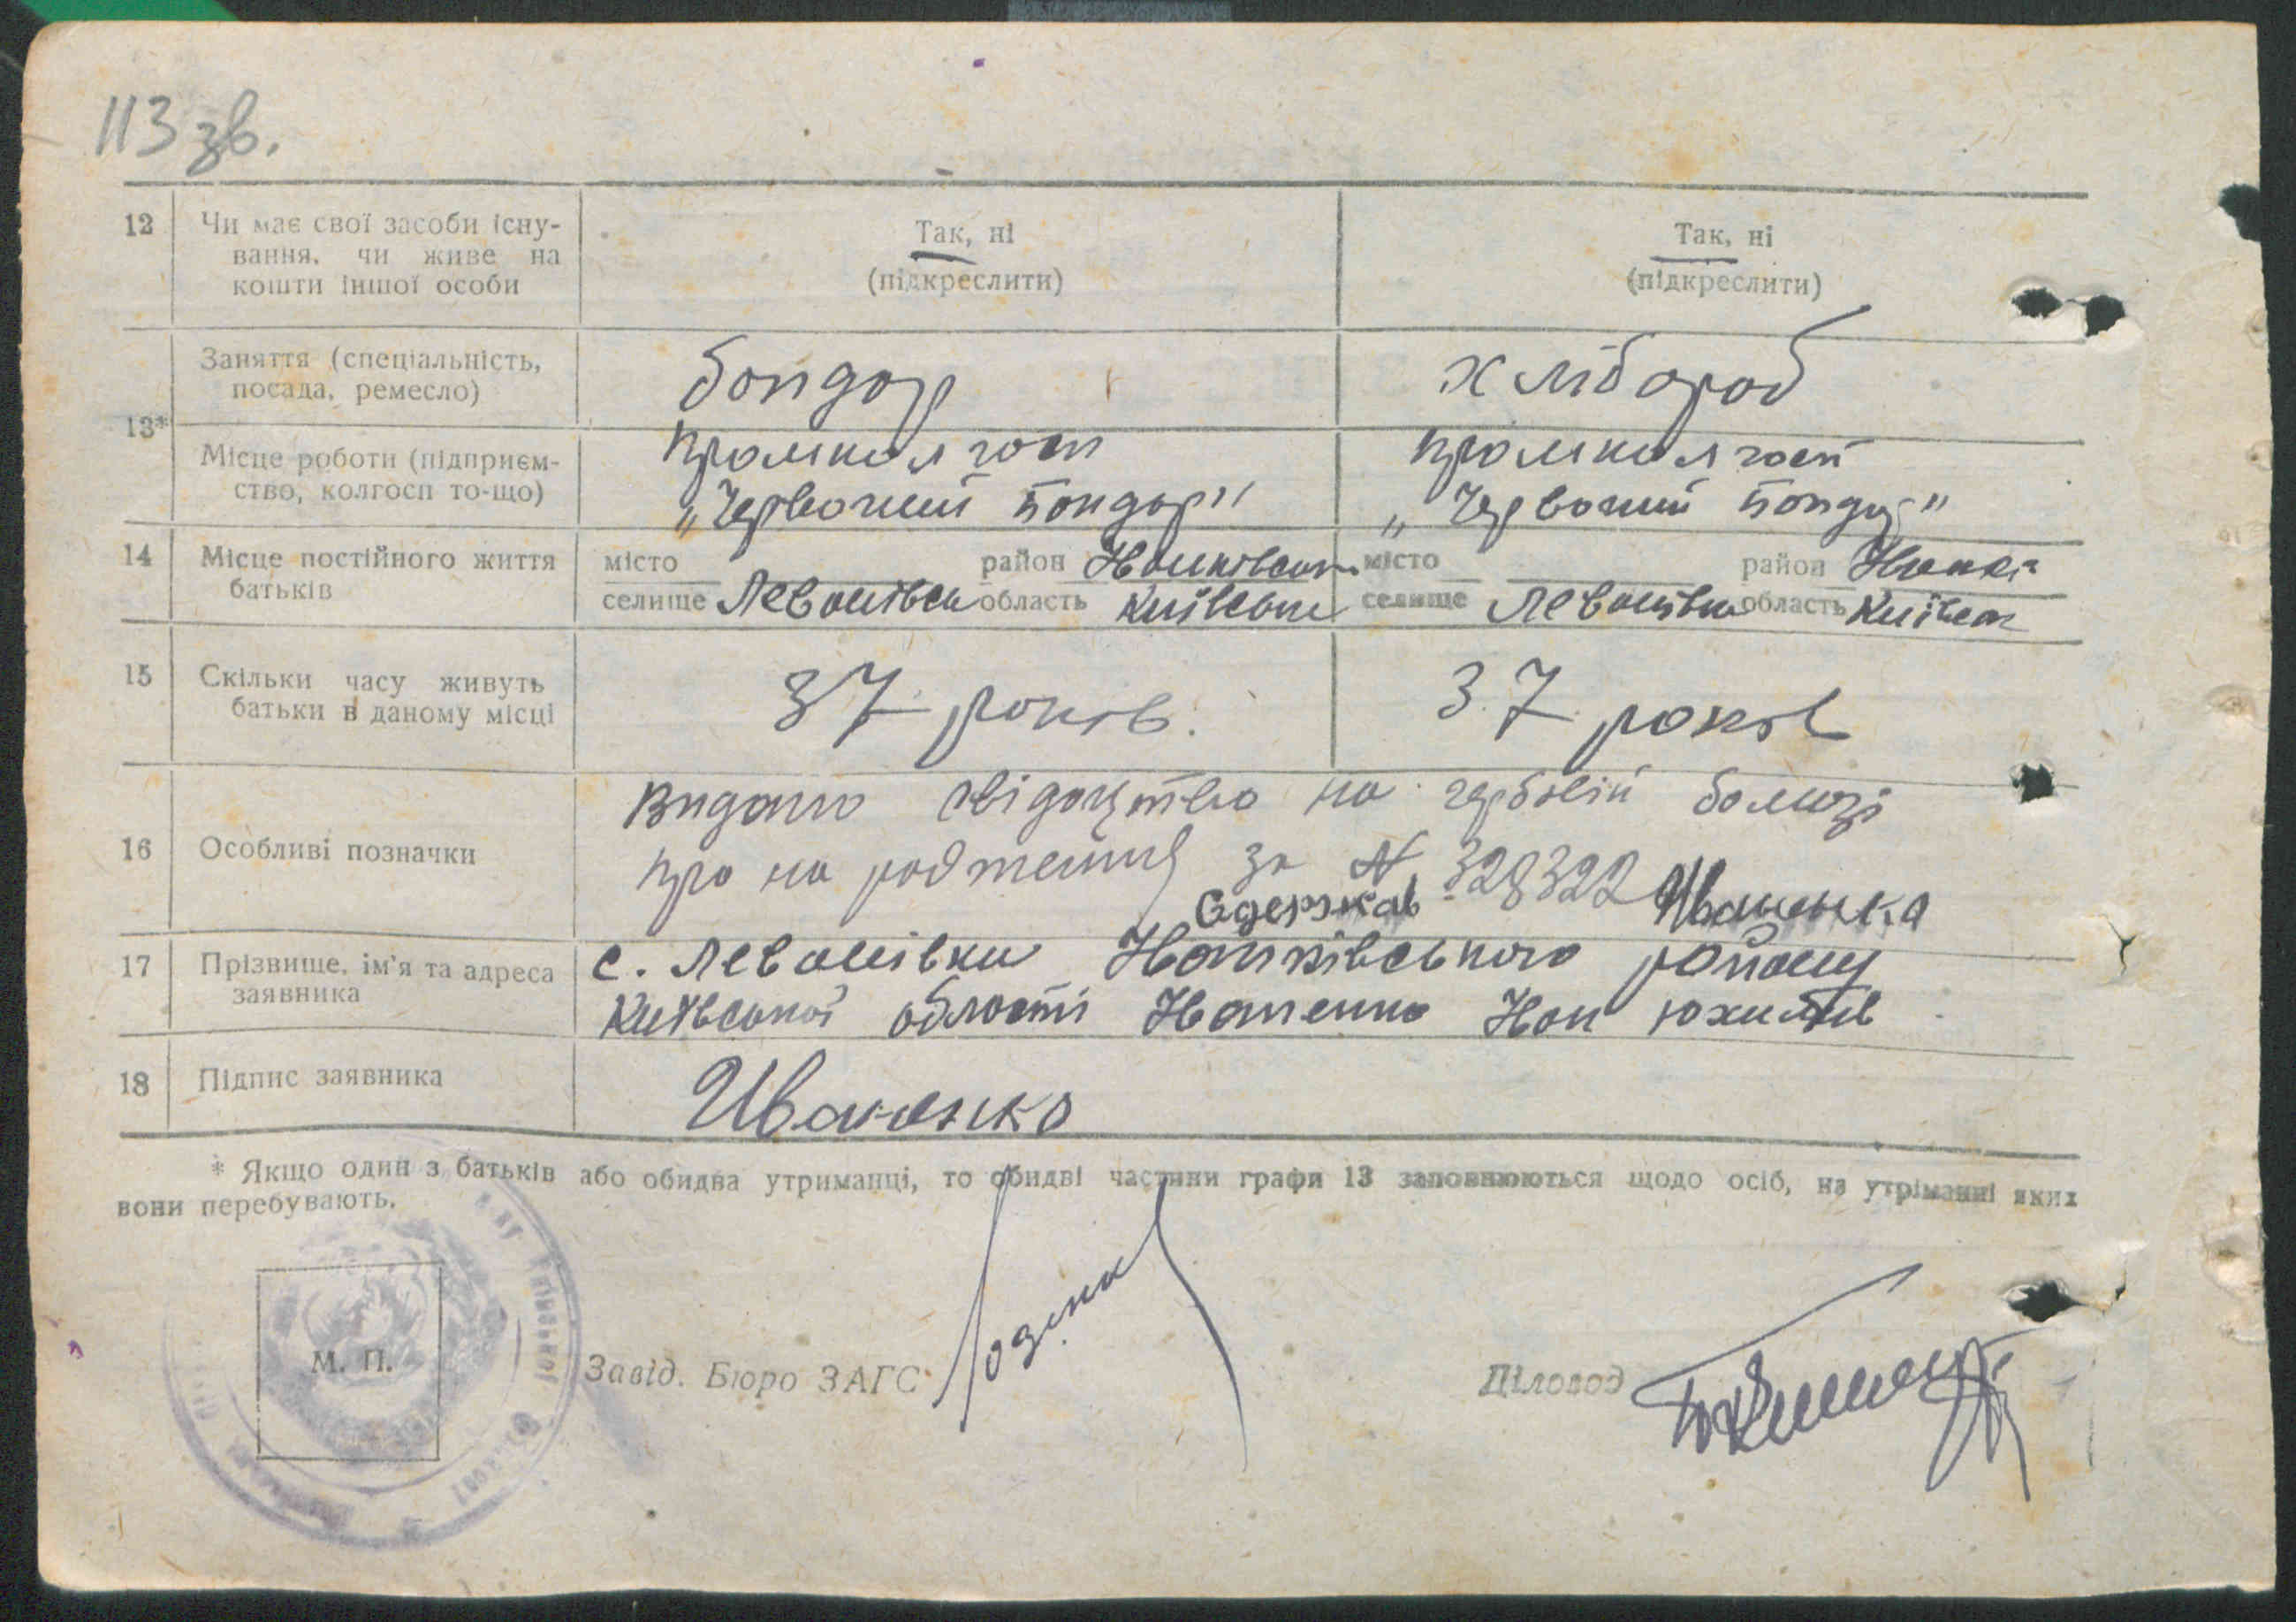 113 зв.
12 Чи має свої засоби існу-
вання, чи живе на
кошти іншої особи
Так, ні
(підкреслити)
Так, ні
(підкреслити)
13*
Заняття (спеціальність,
посада, ремесло)
бондар
хлібороб
Місце роботи (підприєм-
ство, колгосп то-що)
промколгосп
„Червоний бондар"
промколгосп
„Червоний бондар"
14 Місце постійного життя
батьків
місто район
селище область Київська
місто район
селище область Київськ
15 Скільки часу живуть
батьки в даному місці
37 років.
37 років
16 Особливі позначки
Видано свідоцтво на гербовій бомазі
про народження за № 328322
Одержав Иваненко
17 Прізвище, ім'я та адреса
заявника
с. району
Київської області Іваненко
18 Підпис заявника
Иваненко
* Якщо один з батьків або обидва утриманці, то обидві частини графи 13 заповнюються щодо осіб, на утріманні яких
вони перебувають.
М. П.
Завід. Бюро ЗАГС
Діловод